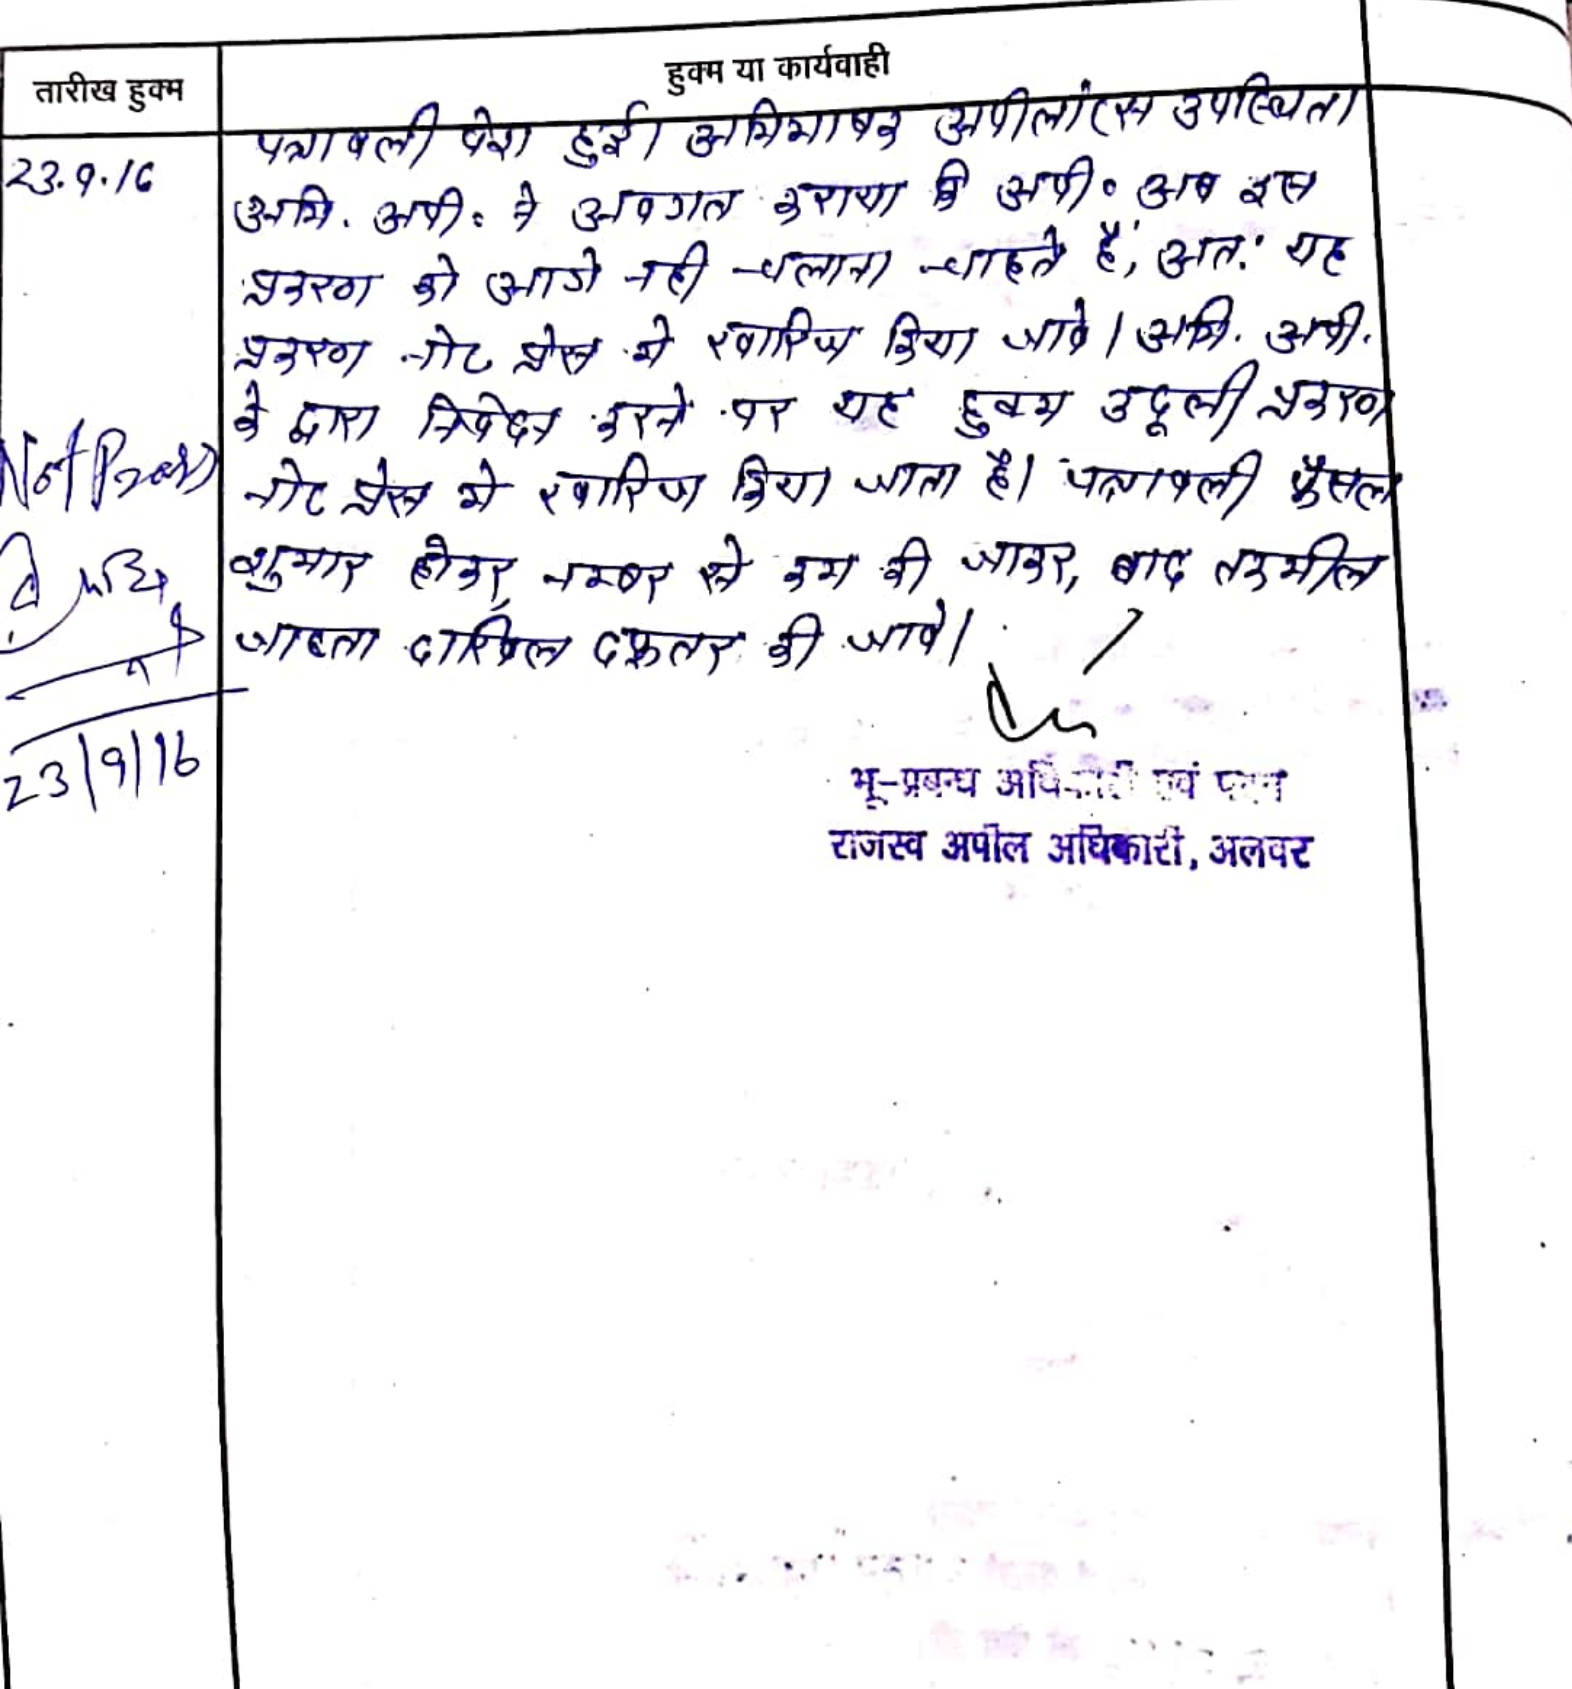 तारीख हुक्म
हुक्म या कार्यवाही
23.9.16
पत्रावली पेश हुई। अभिभाषक अपीलांटस उपस्थित।
अभि. अपी. ने अवगत कराया कि अपी. अब इस
प्रकरण को आगे नही चलाना चाहते हैं, अतः यह
प्रकरण नोट प्रेस मे खारिज किया जावे। अभि. अपी.
के द्वारा निवेदन करने पर यह हुक्म उदूली प्रकरण
नोट प्रेस मे खारिज किया जाता है। पत्रावली फैसल
शुमार होकर, नम्बर से कम की जाकर, बाद तकमील
जाब्ता दाखिल दफ्तर की जावे।
Not Press
23/9/16
भू-प्रबन्ध अधिकारी एवं पदेन
राजस्व अपील अधिकारी, अलवर